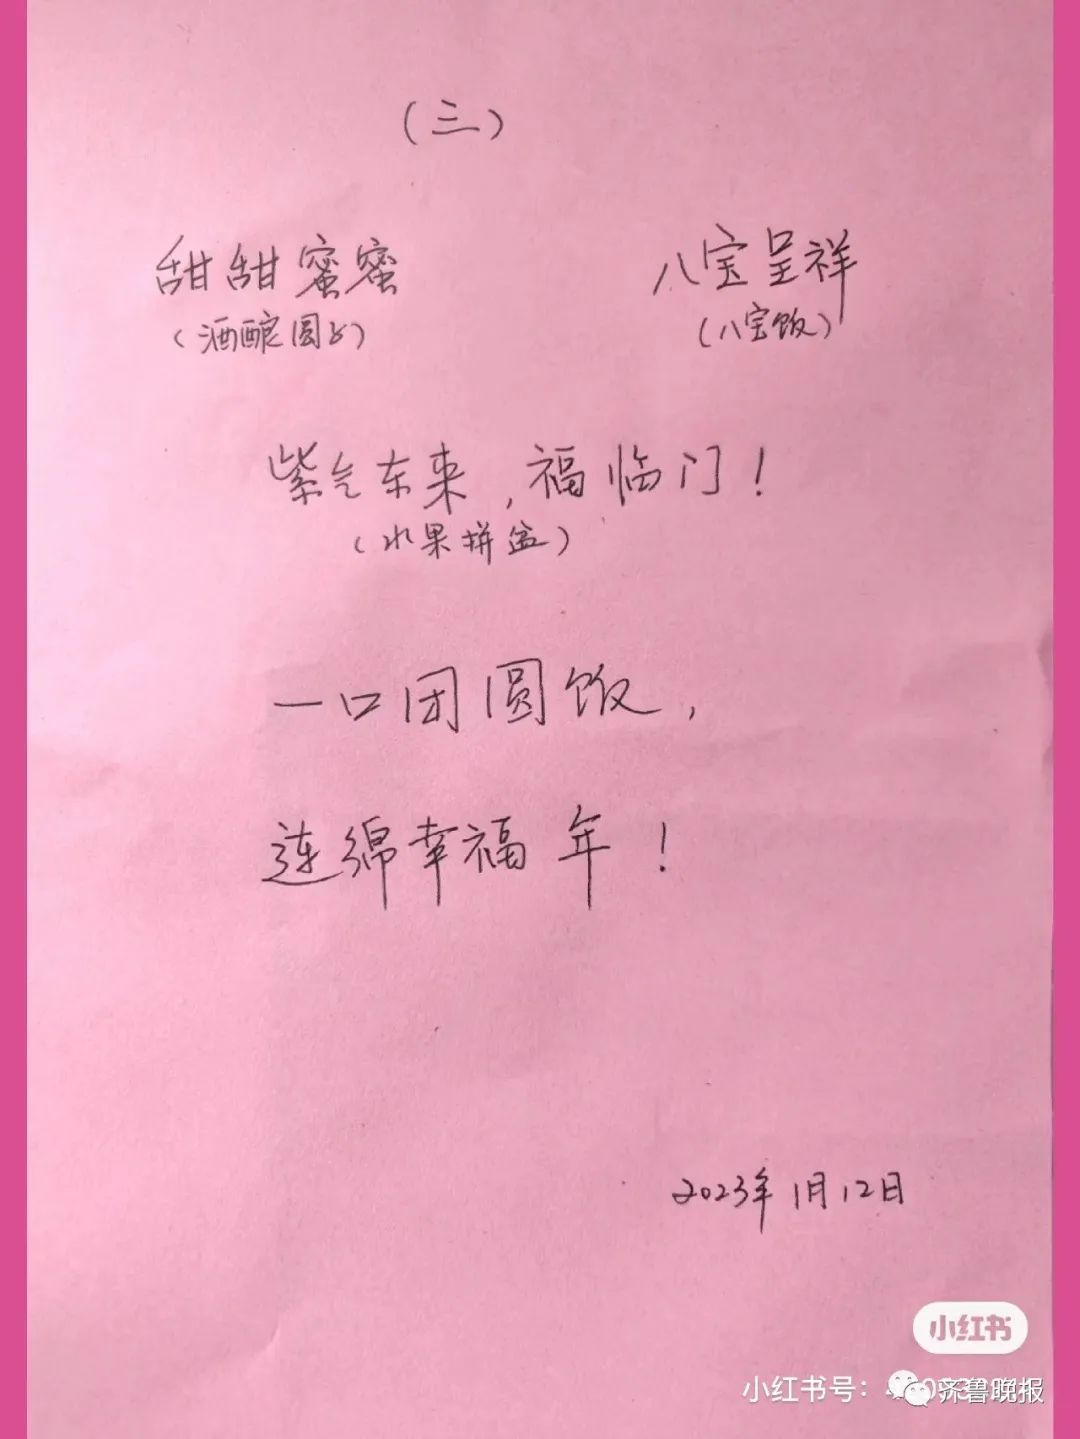 （三）
甜甜蜜蜜 八宝呈祥
（酒酿圆子） （八宝饭）
紫气东来，福临门！
（水果拼盆）
一口团圆饭，
连绵幸福年！
2023年1月12日
小红书
小红书号： 齐鲁晚报